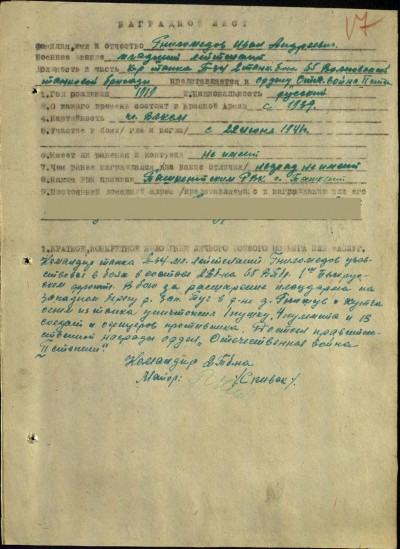 НАГРАДНОЙ ЛИСТ
Фамилия, имя и отчество Гниломедов Иван Андреевич
Военное звание младший лейтенант
Должность и часть к-р танка Т-34 2 танк. б-на 65 Волновахской
танковой бригады представляется к ордену Отеч. война II степ.
1. Год рождения 1919 2. Национальность русский
3. С какого времени состоит в Красной Армии с 1939г.
4. Партийность
5. Участие в боях/ где и когда/ с 22 июня 1941г.
6. Имеет ли ранения и контузии не имеет
7. Чем ранее награждался /за какие отличия/ наград не имеет
8. Каким РВК призван Ташкентским РВК г. Ташкент
9. Постоянный домашний адрес /представляемого к награждению или его
1. КРАТКОЕ, КОНКРЕТНОЕ ИЗЛОЖЕНИЕ ЛИЧНОГО БОЕВОГО ПОДВИГА ИЛИ ЗАСЛУГ.
Командир танка Т-34 мл. лейтенант Гниломедов учав-
ствовал в боях в составе 2тб-на 65 ВТБр. 1го Белорус-
ском фронте. В бою за расширение плацдарма на
западном берегу р.
огнем из танка уничтожил 1 пушку, и 13
солдат и офицеров противника. Достоин правитель-
ственной награды орден „Отечественная война
II степени“.
Командир 2тб-на
Майор: /Спивак/.